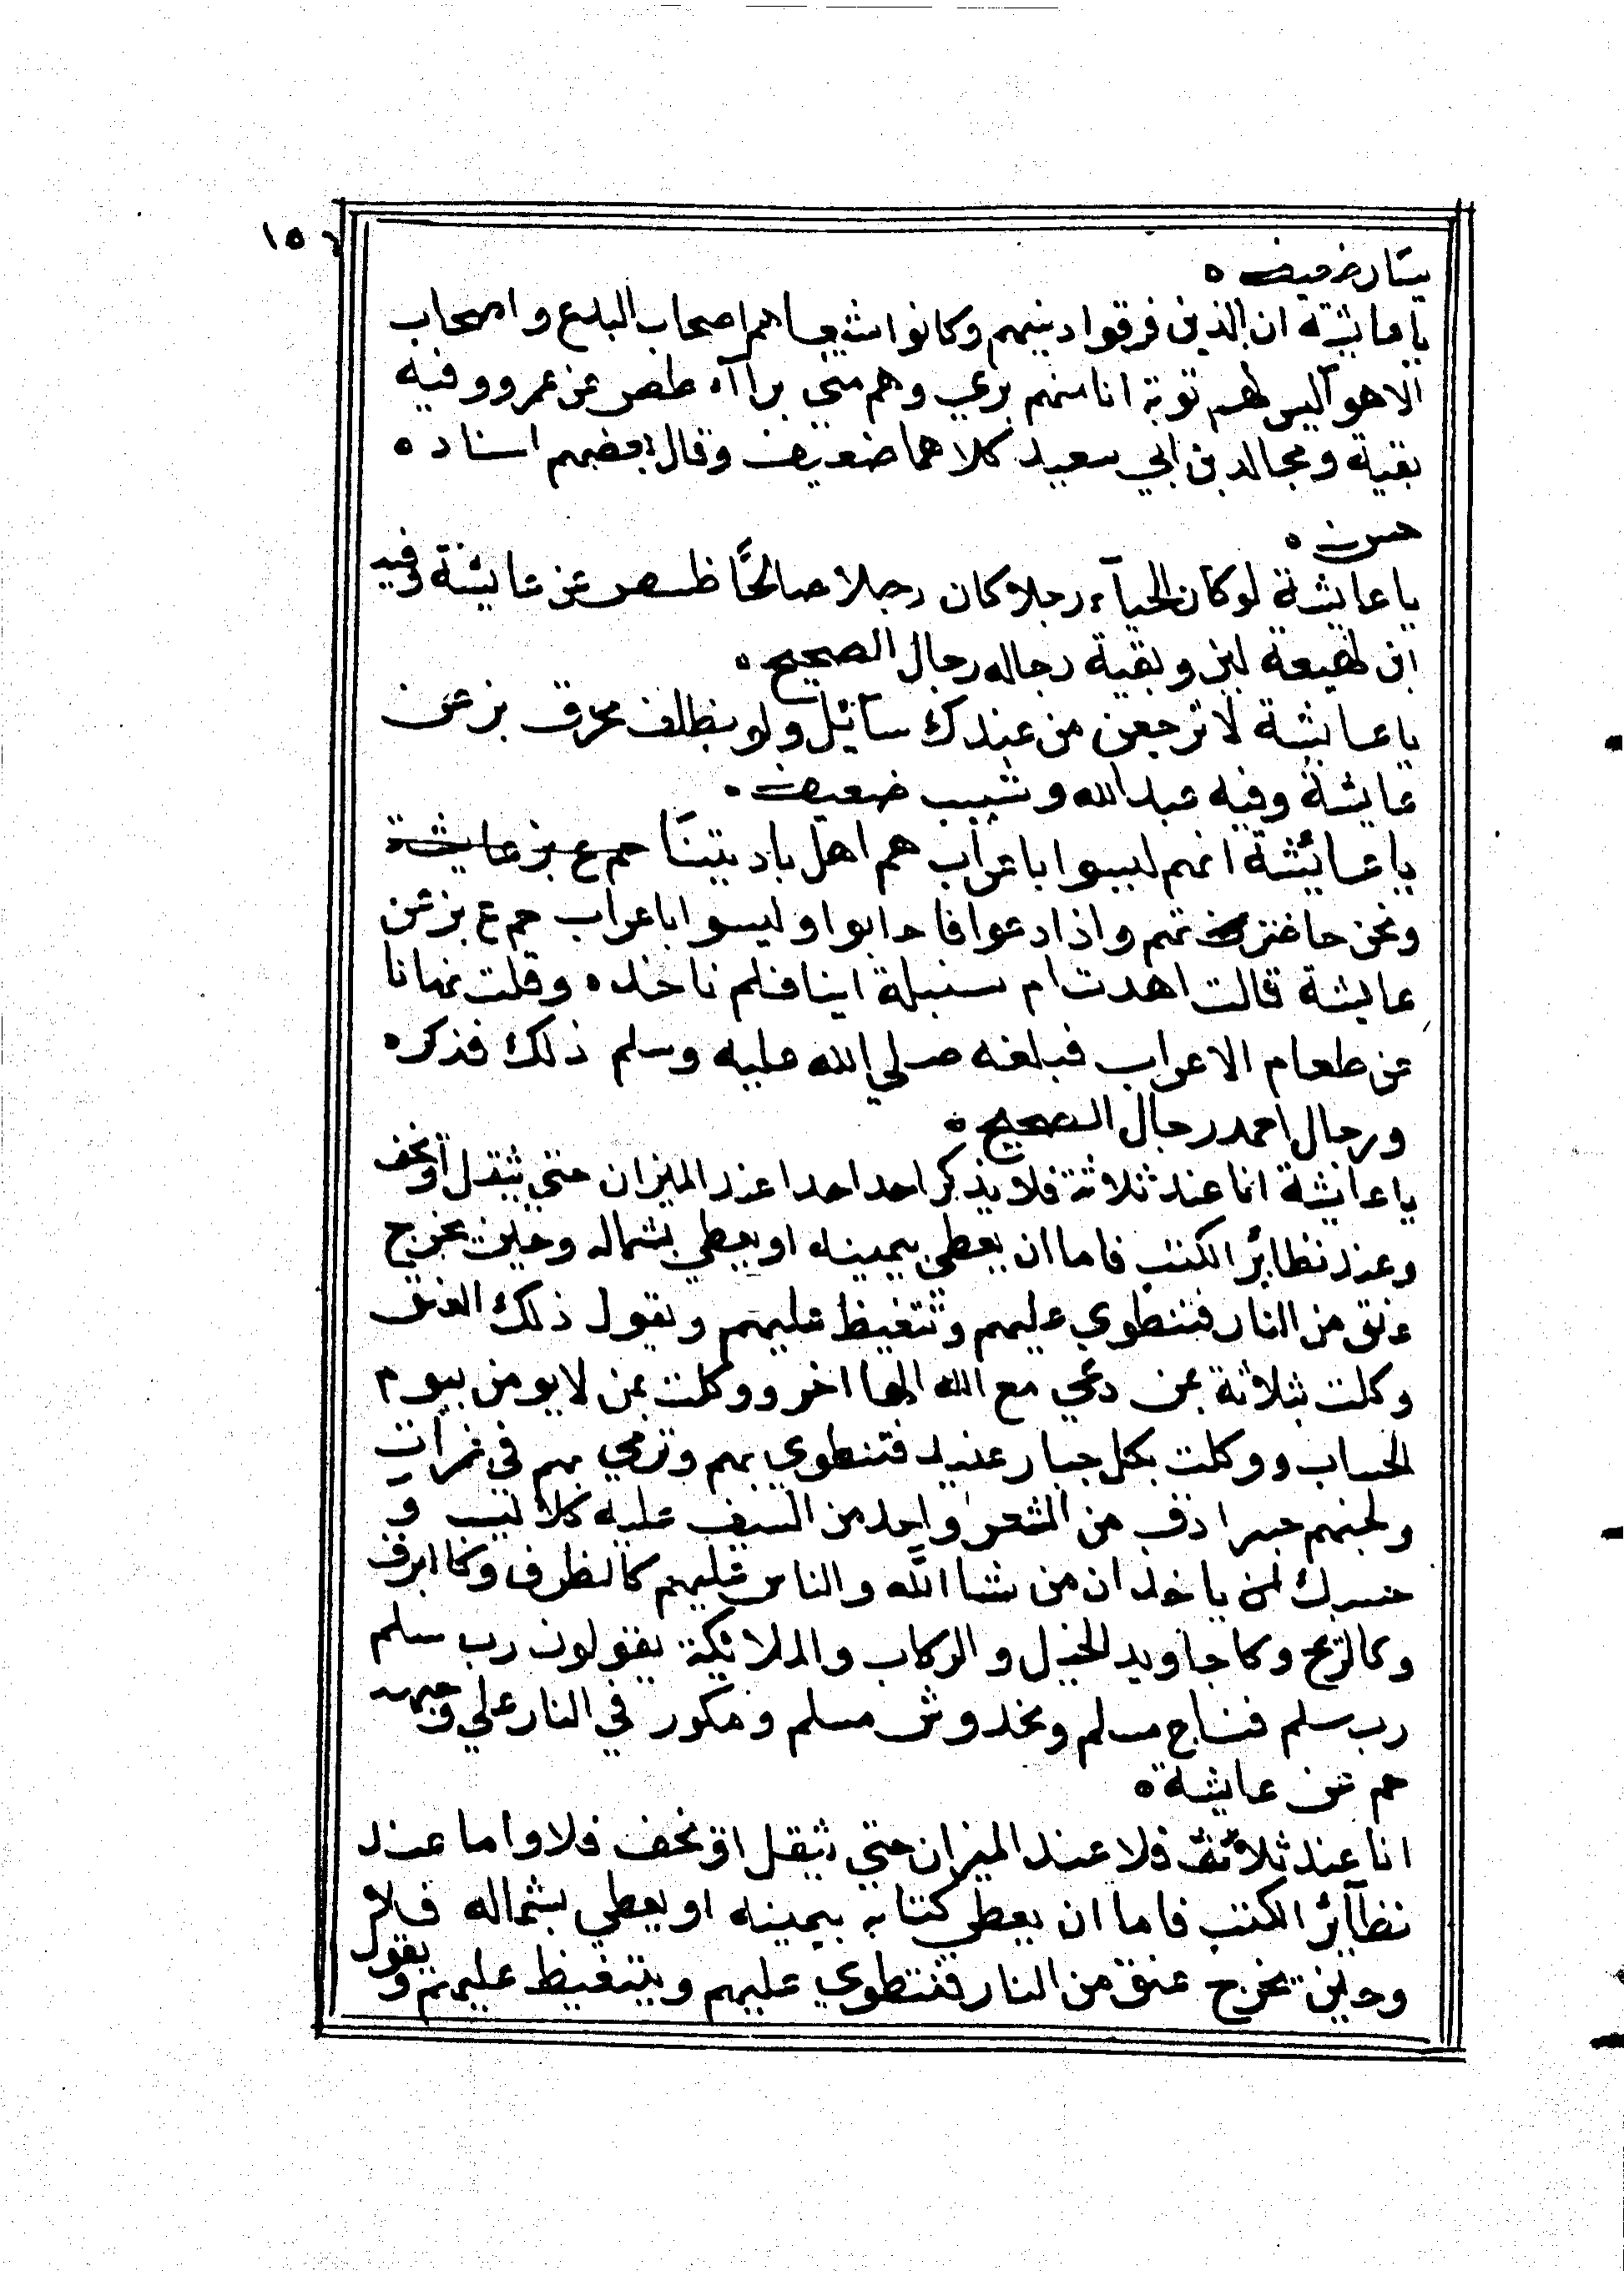 ١٥٦
يسار ضعيف ه
يا عايشة ان الذين فرقوا دينهم وكانوا شيعا هم اصحاب البدع واصحاب
الاهوآ ليس لهم توبة انا منهم بري وهم مني برأآه طص عن عمر ووفيه
بقية ومجالد بن ابي سعيد كلاهما ضعيف وقال بعضهم اسناده
حسن ه
يا عايشة لو كان الحيآء رجلا كان رجلا صالحًا طسص عن عايشة وفيه
ابن لهيعة لين وبقية رجاله رجال الصحيح ه
يا عايشة لا ترجعن من عندك سآئل ولو بظلف محرق بز عن
عايشة وفيه عبدالله وشبيب ضعيف ه
يا عائشة انهم ليسوا باعراب هم اهل باديتنا حم ع بز عايشة
ونحن حاضرتهم واذا دعوا فاجابوا وليسوا باعراب حم ع بز عن
عايشة قالت اهدت ام سنبلة لبنا فلم ناخده وقلت نهانا
عن طعام الاعراب فبلغه صلي الله عليه وسلم ذلك فذكره
ورجال احمد رجال الصحيح ه
يا عايشة اما عند ثلاثة فلا يذكر احد احدا عند الميزان حتي يثقل او يخف
وعند تظاير الكتب فاما ان يعطي بيمينه او يعطي بشماله وحين يخرج
عنق من النار فتنطوي عليهم وتتغيظ عليهم ويقول ذلك العنق
وكلت بثلاثة بمن دعي مع الله الها اخر ووكلت بمن لا يومن بيوم
الحساب ووكلت بكل جبار عنيد فتنطوي بهم وترمي بهم في غمرات
ولجهنم جسر ادق من الشعر واحد من السيف عليه كلاليب و
حسك ياخذان من شا الله والناس عليهم كالطرف وكالبرق
وكالريح وكاجاويد الخيل والركاب والملائكة يقولون رب سلم
رب سلم فناج مسلم ومخدوش مسلم ومكور في النار علي وجهه
حم عن عايشة ه
اما عند ثلاث فلا عند الميزان حتي يثقل او يخف فلا واما عند
تظاير الكتب فاما ان يعطي كتابه بيمينه او يعطي بشماله فلا
وحين يخرج عنق من النار فتنطوي عليهم ويتغيظ عليهم ويقول